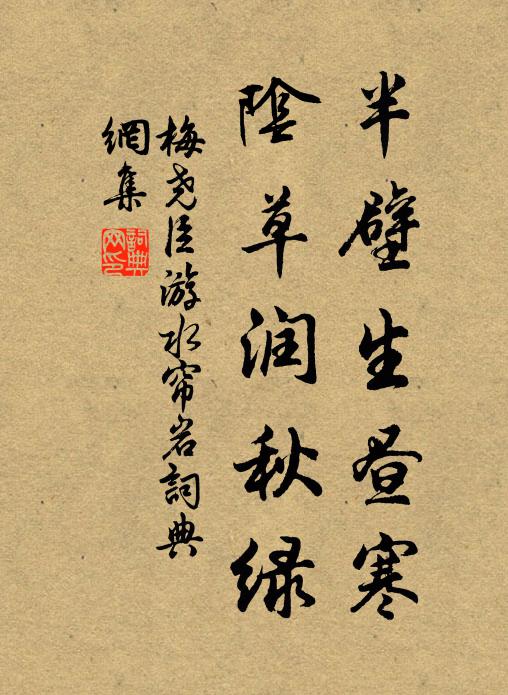 半壁生昼寒
陰草润秋绿
梅尧臣游水帘岩詞典
網集
詞典
网印